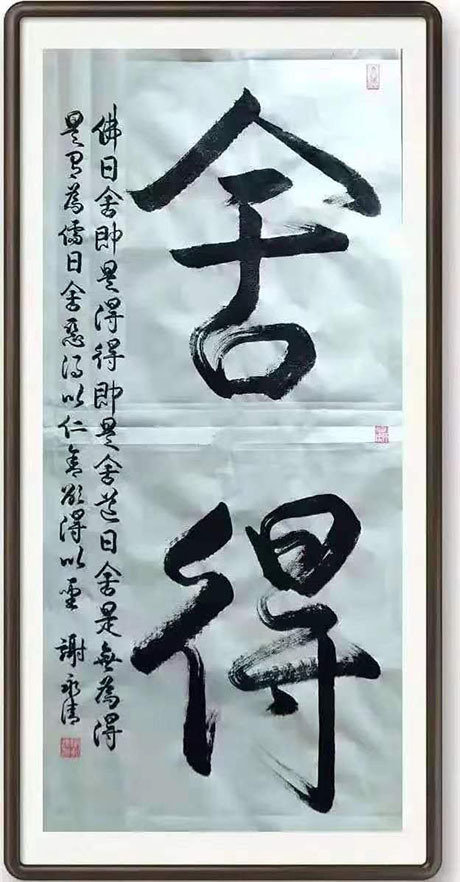 舍得
佛曰舍即是得得即是舍道曰舍是無為得
是有為儒曰舍惡得以仁舍欲得以聖 謝永清